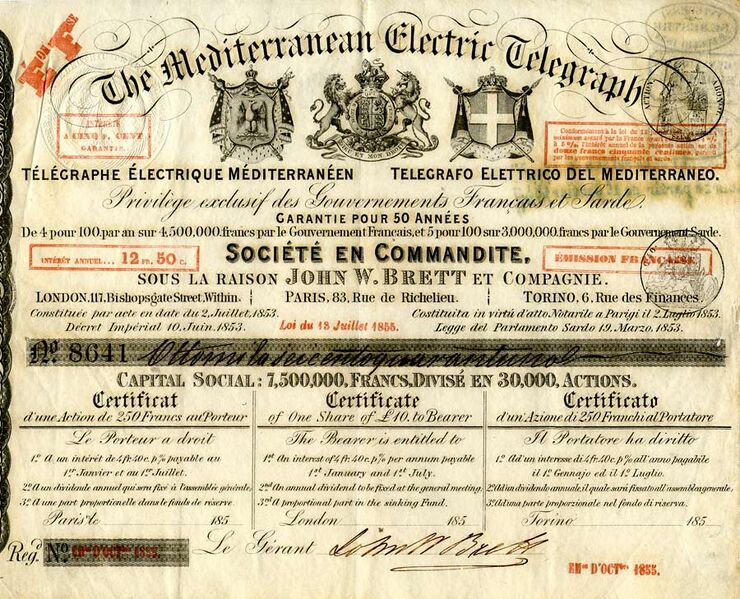 The Mediterranean Electric Telegraph
ET MON
INTÉRÊTS
A CINQ P. CENT
GARANTIE.
ACTION
ABONN
Conformément à la loi du
minimum assuré par la France
à 5 %, l'intérêt annuel de la présente action est de
douze francs cinquante centimes,
par les gouvernements français et sarde.
TÉLÉGRAPHE ÉLECTRIQUE MÉDITERRANÉEN
TELEGRAFO ELETTRICO DEL MEDITERRANEO.
Privilège exclusif des Gouvernements Français et Sarde.
GARANTIE POUR 50 ANNÉES
De 4 pour 100, par an sur 4,500,000, francs par le Gouvernement Français, et 5 pour 100 sur 3,000,000, francs par le Gouvernement Sarde.
INTÉRÊT ANNUEL... 12 FR. 50 C.
SOCIÉTÉ EN COMMANDITE,
ÉMISSION FRANÇAISE
SOUS LA RAISON JOHN W. BRETT ET COMPAGNIE.
LONDON. 117, Bishopsgate Street, Within.
PARIS, 83, Rue de Richelieu.
TORINO, 6. Rue des Finances.
Constituée par acte en date du 2, Juillet, 1853.
Costituita in virtú d'atto Notarile a Parigi il 2, Luglio 1853.
Décret Impérial 10, Juin, 1853.
Loi du 13 Juillet 1855.
Legge del Parlamento Sardo 19, Marzo, 1853.
No. 8641 Ottomila seicento quarantuno
CAPITAL SOCIAL: 7,500,000, FRANCS, DIVISÉ EN 30,000, ACTIONS.
Certificat
d'une Action de 250 Francs au Porteur
Le Porteur a droit
1º A un intérêt de 4 fr. 40 c. p% payable au
1er Janvier et au 1er Juillet.
2º A un dividende annuel qui sera fixé à l'assemblée générale,
3º A une part proportionelle dans le fonds de réserve.
Paris le 185
Certificate
of One Share of £10. to Bearer
The Bearer is entitled to
1st An interest of 4 fr. 40 c. p% per annum payable
1st January and 1st July.
2nd An annual dividend to be fixed at the general meeting,
3rd A proportional part in the sinking Fund.
London 185
Certificato
d'un'Azione di 250 Franchi al Portatore
Il Portatore ha diritto
1º Ad un'interesse di 4 fr. 40 c. p% all'anno pagabile
il 1º Gennajo ed il 1º Luglio.
2º Ad un dividendo annuale, il quale sarà fissato all'assemblea generale,
3º Ad una parte proporzionale nel fondo di riserva.
Torino 185
Regd. No. D'OCTbre 1855.
Le Gérant John W Brett
D'OCTbre 1855.